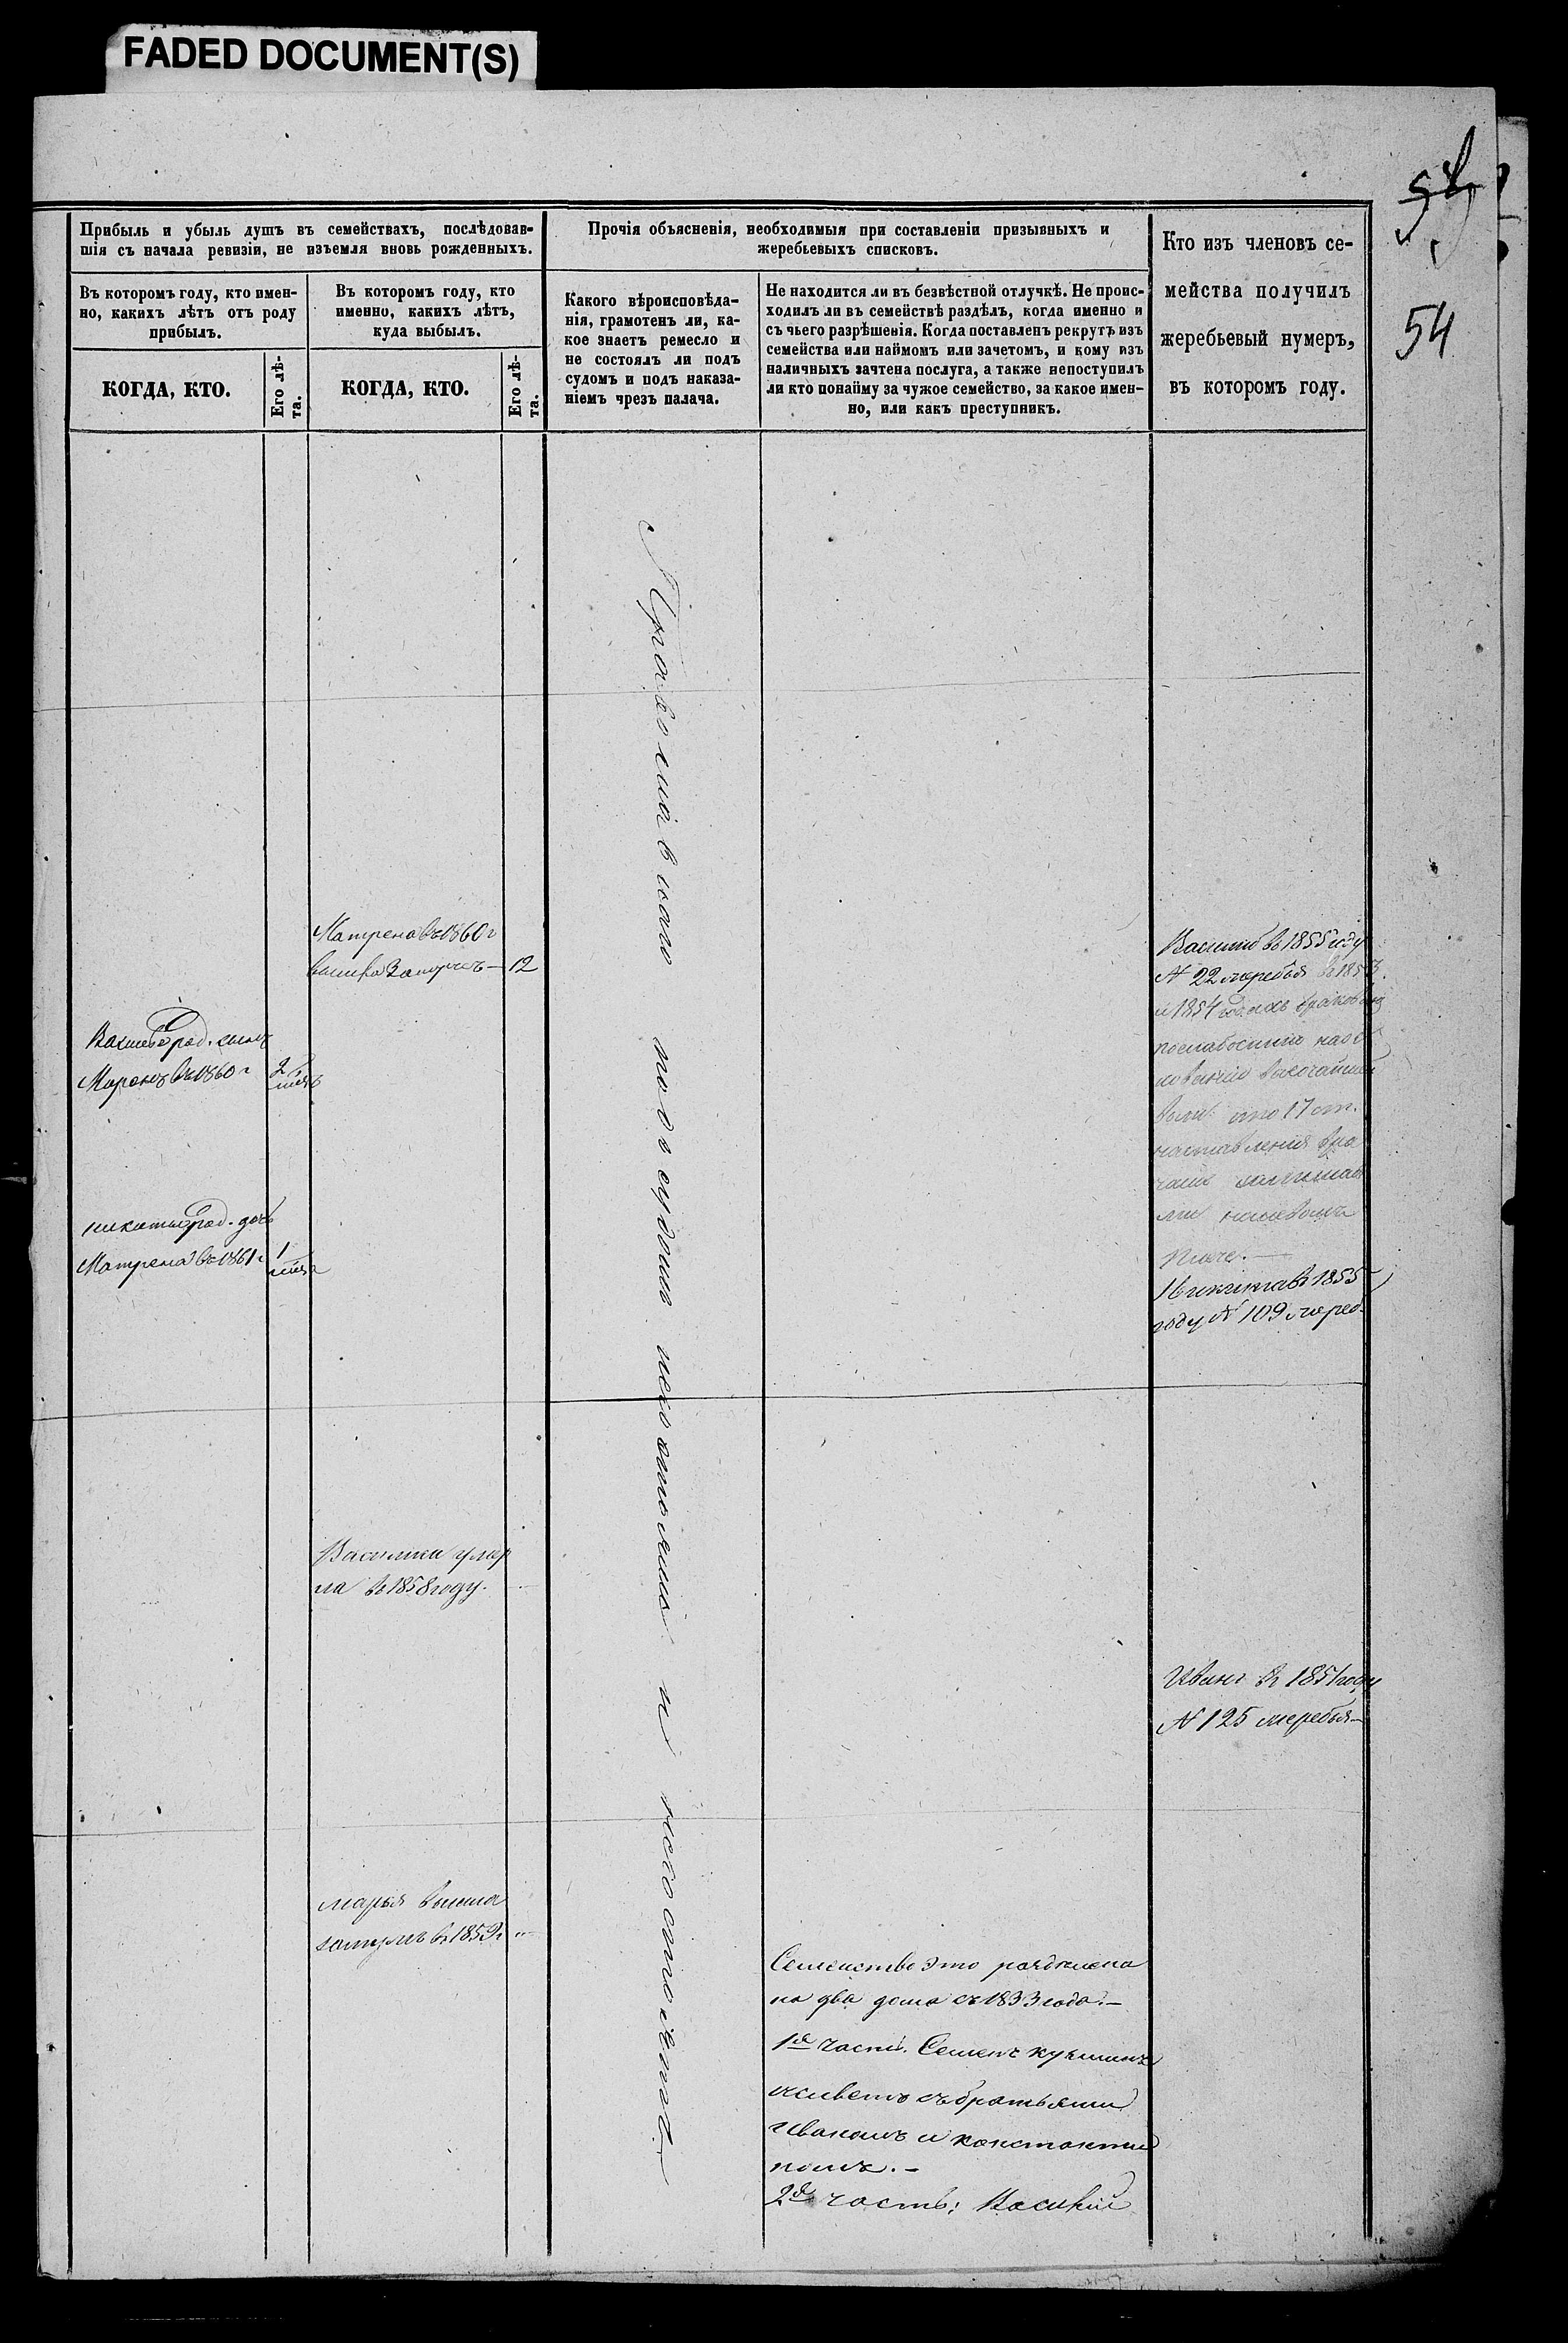 FADED DOCUMENT(S)
54
Прибыль и убыль душъ въ семействахъ, послѣдовав-
шія съ начала ревизіи, не изъемля вновь рожденныхъ.
Въ которомъ году, кто имен-
но, какихъ лѣтъ отъ роду
прибылъ.
КОГДА, КТО.
Его лѣ-
та.
Въ которомъ году, кто
именно, какихъ лѣтъ,
куда выбылъ.
КОГДА, КТО.
Его лѣ-
та.
Прочія объясненія, необходимыя при составленіи призывныхъ и
жеребьевыхъ списковъ.
Какого вѣроисповѣда-
нія, грамотенъ ли, ка-
кое знаетъ ремесло и
не состоялъ ли подъ
судомъ и подъ наказа-
ніемъ чрезъ палача.
Не находится ли въ безвѣстной отлучкѣ. Не проис-
ходилъ ли въ семействѣ раздѣлъ, когда именно и
съ чьего разрѣшенія. Когда поставленъ рекрутъ изъ
семейства или наймомъ или зачетомъ, и кому изъ
наличныхъ зачтена послуга, а также непоступилъ
ли кто понайму за чужое семейство, за какое имен-
но, или какъ преступникъ.
Кто изъ членовъ се-
мейства получилъ
жеребьевый нумеръ,
въ которомъ году.
Матрена въ 1860 г
вышла Замужъ — 12
род. сынъ
Миронъ въ 1860 г
2
род. дочь
Матрена въ 1861 г
1
Василиса умер
ла въ 1858 году.
марья вышла
замужъ въ 1859 г
Православнаго подъ судомъ несостояли и несостоятъ
Семейство это раздѣлена
на два дома съ 1833 года. —
1я часть. Семенъ Кузминъ
живетъ съ братьями
Иваномъ и Константи
номъ. —
2я часть: Василій
Василій въ 1855 году
№ 22 жеребья въ 1853
и 1854 годахъ
17 ст.
наставленія
Никита въ 1855
году № 109 жереб.
Иванъ въ 1851 году
№ 125 жеребья —